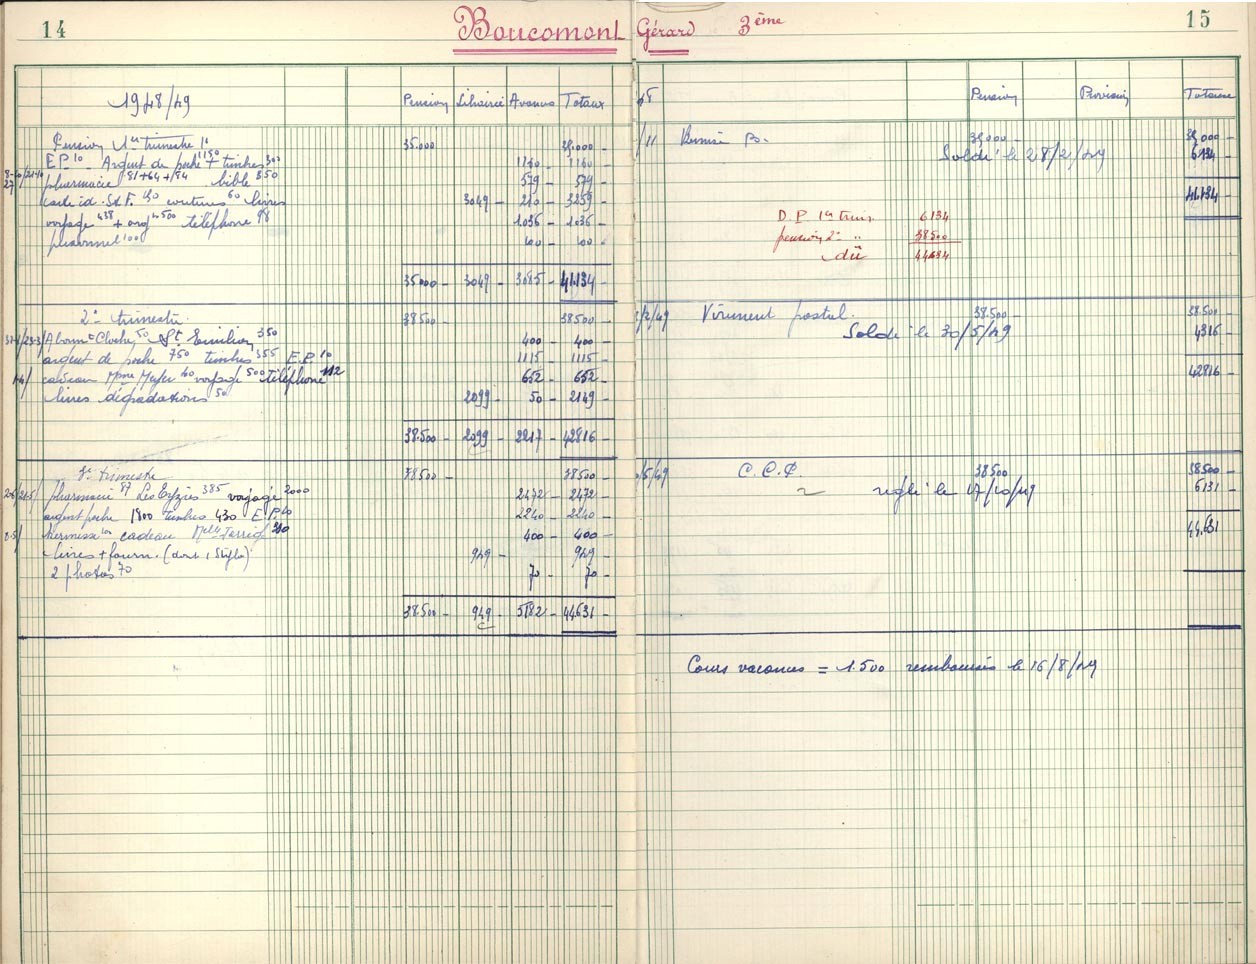 14
Boucomont Gérard 3ème
15
1948/49
Pension Librairie Avances Totaux
Pension 1er trimestre 35.000 35.000
E.P. 10 Argent de poche 1150 + timbres 300 1160 1160
pharmacie 81+64+84 bible 350 579 579
carte id. S.d.F. 150 coutures 60 livres 3049 210 3259
voyage 438 + arg 500 téléphone 98 1036 1036
100 100 100
35000 3049 3085 41.134
2e trimestre 38500 38500
St Emilion 350 400 400
argent de poche 750 timbres 355 E.P. 10 1115 1115
cadeau Mme Meyer 40 voyage 500 téléphone 112 652 652
livres dégradations 50 2099 50 2149
38.500 2099 2217 42816
3e trimestre 38500 38500
pharmacie 87 Les Eyzies 385 voyage 2000 2472 2472
argent poche 1800 timbres 430 E.P. 10 2240 2240
cadeau Melle 400 400
livres + fourn. (dont 1 Stylo) 949 949
2 photos 70 70 70
38.500 949 5182 44631
48 Pension Provision Totaux
/11 Remise 35,000 35,000
Soldé le 28/2/49 6134
41.134
D.P. 1er trim 6134
pension 2e " 38500
dû 44634
/2/49 Virement postal. 38.500 38.500
Soldé le 30/5/49 4316
42816
/5/49 C.C.P. 38500 38.500
réglé le 17/10/49 6131
44.631
Cours vacances = 1.500 remboursés le 16/8/49